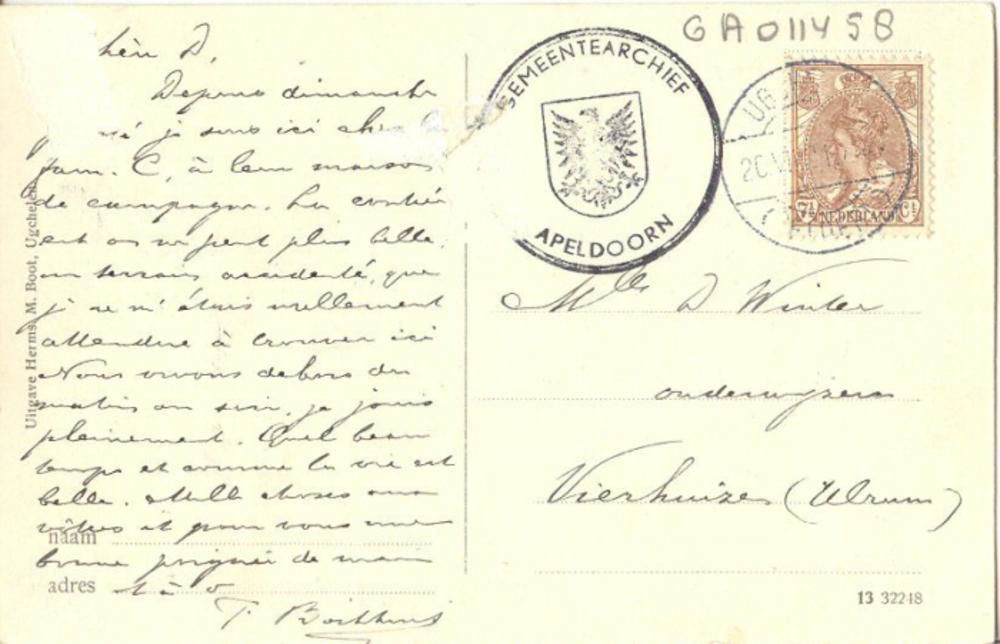 GA011458
GEMEENTEARCHIEF
APELDOORN
NEDERLAND
D,
Depuis dimanche
je suis ici chez la
fam. C, à leur maison
de campagne. La contrée
est on ne peut plus belle,
un terrain accidenté, que
je ne m'étais nullement
attendue à trouver ici
Nous vivons dehors du
matin au soir, je jouis
pleinement. Quel beau
temps et comme la vie est
belle. Mille choses aux
vôtres et pour vous une
bonne poignée de main
t. à v.
naam
adres
Uitgave Herms. M. Boot, Ugchelen
Mlle D Winter
onderwijzeres
Vierhuizen (Ulrum)
13 32248